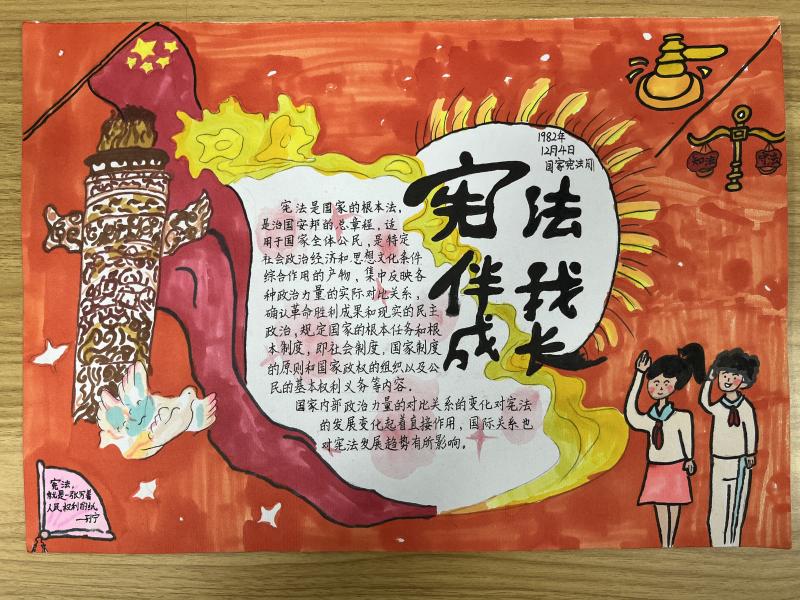 1982年
12月4日
国家宪法日
宪法
伴我
成长
宪法是国家的根本法，
是治国安邦的总章程，适
用于国家全体公民，是特定
社会政治经济和思想文化条件
综合作用的产物，集中反映各
种政治力量的实际对比关系，
确认革命胜利成果和现实的民主
政治，规定国家的根本任务和根
本制度，即社会制度，国家制度
的原则和国家政权的组织以及公
民的基本权利义务等内容。
国家内部政治力量的对比关系的变化对宪法
的发展变化起着直接作用，国际关系也
对宪法发展趋势有所影响。
知法
守法
宪法，
就是一张写着
人民权利的纸
—列宁